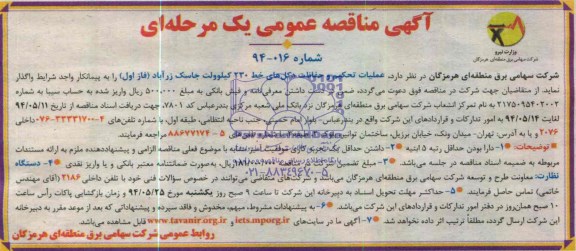 آگهی مناقصه عمومی یک مرحله‌ای
شماره ۰۱۶-۹۴
وزارت نیرو
شرکت سهامی برق منطقه‌ای هرمزگان
شرکت سهامی برق منطقه‌ای هرمزگان در نظر دارد، عملیات تحکیم و حفاظت دکل‌های خط ۲۳۰ کیلوولت جاسک زرآباد (فاز اول) را به پیمانکار واجد شرایط واگذار
نماید، از متقاضیان جهت شرکت در مناقصه فوق دعوت می‌گردد، ضمن داشتن معرفی‌نامه و فیش بانکی به مبلغ ۵۰۰.۰۰۰ ریال واریز شده به حساب سیبا به شماره
۲۱۷۵۰۹۵۴۰۲۰۰۲ به نام تمرکز انشعاب شرکت سهامی برق منطقه‌ای هرمزگان نزد بانک ملی شعبه مرکزی بندرعباس کد ۷۸۰۱، جهت دریافت اسناد مناقصه از تاریخ ۹۴/۰۵/۱۱
لغایت ۹۴/۰۵/۱۴ به امور تدارکات و قراردادهای این شرکت واقع در بندرعباس، بلوار امام خمینی، جنب ناحیه انتظامی، طبقه اول، شماره تلفن‌های ۴-۳۳۳۳۱۷۰۰-۰۷۶ داخلی
۲۰۷۶ و یا به آدرس: تهران، میدان ونک، خیابان برزیل، ساختمان توانیر، شماره تلفن‌های ۵-۸۸۶۷۷۱۷۴ مراجعه فرمایند.
توضیحات: ۱- دارا بودن حداقل رتبه ۵ ابنیه ۲- داشتن حداقل یک تجربه کاری موفقیت‌آمیز مشابه با موضوع فعلی مناقصه الزامی و پیشنهاددهنده ملزم به ارائه مستندات
مربوطه به ضمیمه اسناد مناقصه در جلسه می‌باشد. ۳- مبلغ تضمین ریال، به‌صورت ضمانتنامه معتبر بانکی و یا واریز نقدی ۴- دستگاه
نظارت: معاونت طرح و توسعه شرکت سهامی برق منطقه‌ای هرمزگان می‌توانند در خصوص سؤالات فنی خود با تلفن داخلی ۲۱۸۶ (آقای مهندس
خاتمی) تماس حاصل فرمایند. ۵- حداکثر مهلت تحویل اسناد به دبیرخانه این شرکت تا ساعت ۹ صبح روز یکشنبه مورخ ۹۴/۰۵/۲۵ و زمان بازگشایی پاکات رأس ساعت
۱۰ صبح همان‌روز در دفتر امور تدارکات و قراردادهای این شرکت می‌باشد. ۶- به پیشنهادات مشروط، مبهم، مخدوش و فاقد سپرده و پیشنهاداتی که بعد از موعد مقرر به دبیرخانه
این شرکت ارسال گردد، مطلقاً ترتیب اثر داده نخواهد شد. ۷- آگهی ما در سایت‌های iets.mporg.ir و www.tavanir.org.ir قابل مشاهده می‌باشد.
روابط عمومی شرکت سهامی برق منطقه‌ای هرمزگان
۰۲۱-۸۸۳۴۹۶۷۰-۵